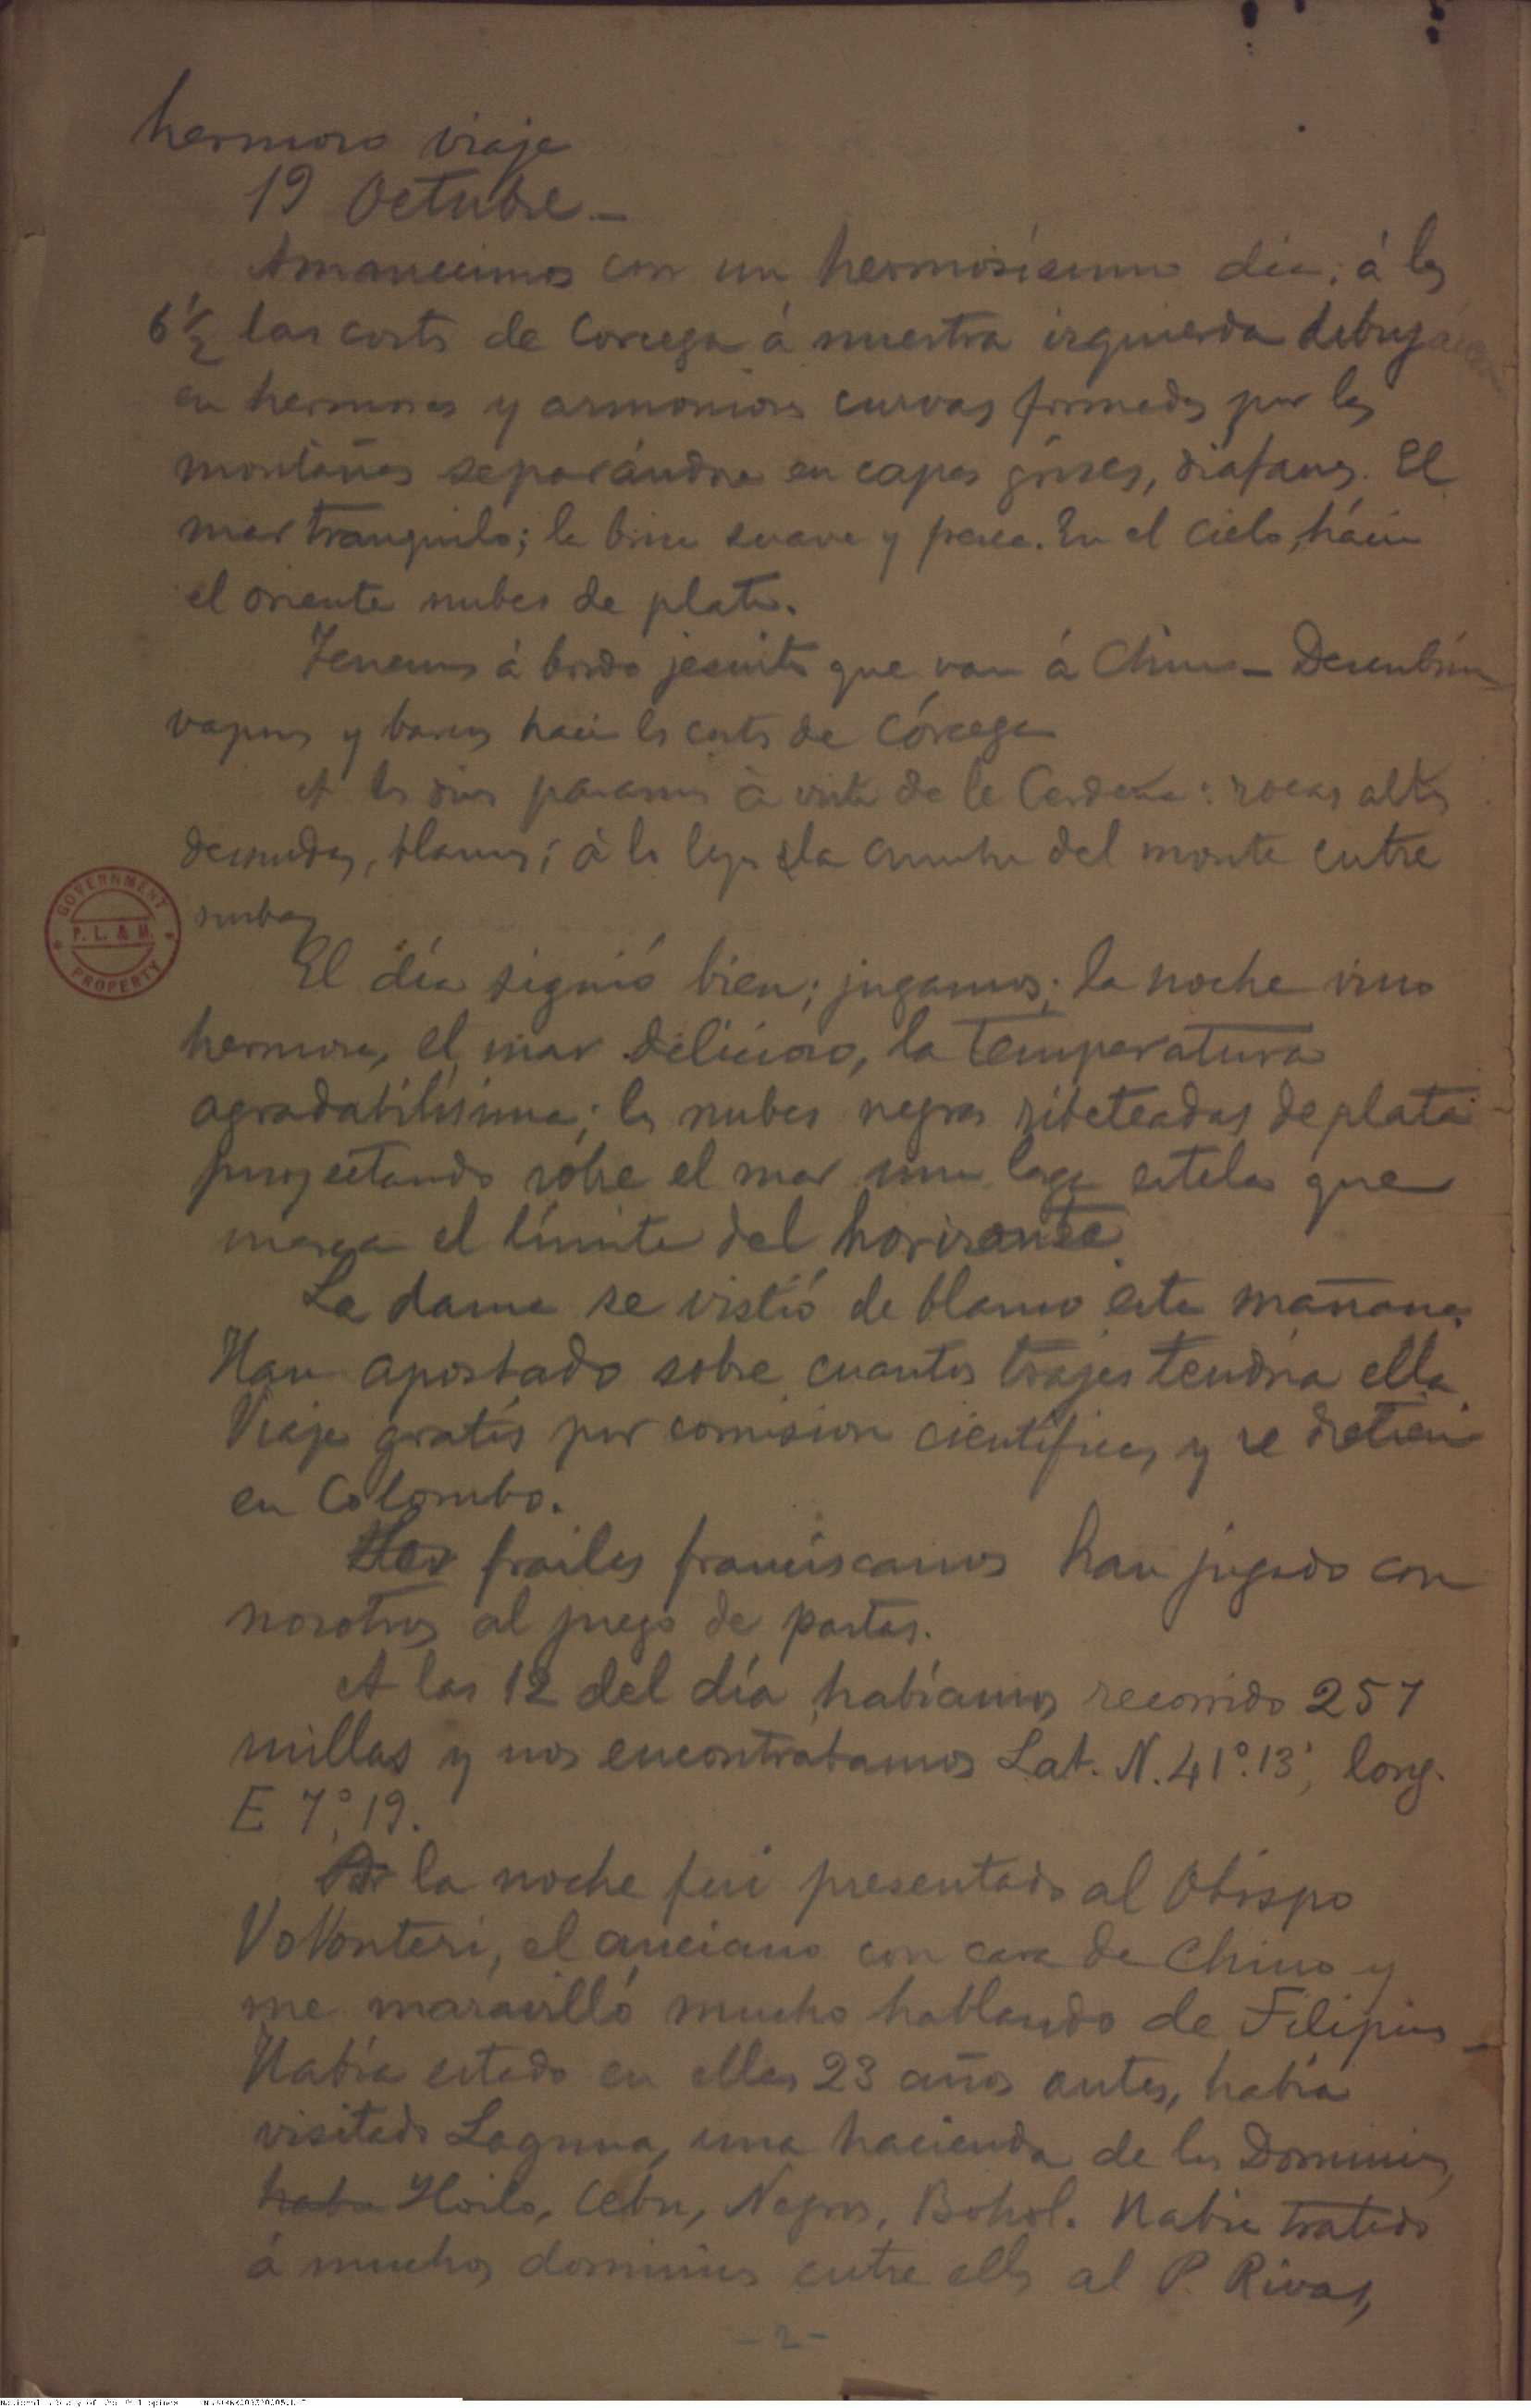 hermoso viaje
19 Octubre.—
Amanecimos con un hermosísimo día; á las
6 1/2 las costas de Córcega á nuestra izquierda dibujá
en hermosas y armoniosas curvas formadas por las
montañas separándose en capas grises, diáfanas. El
mar tranquilo; la brisa suave y fresca. En el cielo, hácia
el oriente nubes de plata.
Tenemos á bordo jesuitas que van á China — Descubrimos
vapores y barcos hacia las costas de Córcega
A las diez pasamos á vista de la Cerdeña: rocas altas
desnudas, blancas; á lo lejos la cumbre del monte entre
nubes
El día siguió bien; jugamos; la noche vino
hermosa, el mar delicioso, la temperatura
agradabilísima; las nubes negras ribeteadas de plata
proyectando sobre el mar una larga estela que
marca el límite del horizonte.
La dama se vistió de blanco esta mañana.
Han apostado sobre cuantos trajes tendría ella
Viaja gratis por comision científica, y se detiene
en Colombo.
Los frailes franciscanos han jugado con
nosotros al juego de
A las 12 del día habíamos recorrido 257
millas y nos encontrabamos Lat. N. 41°.13', long.
E 7°, 19.
la noche fui presentado al Obispo
Volonteri, el anciano con cara de Chino y
me maravilló mucho hablando de Filipinas —
Había estado en ellas 23 años antes, había
visitado Laguna, una hacienda de los Dominicos,
había Iloilo, Cebu, Negros, Bohol. Había tratado
á muchos dominicos entre ellos al P. Rivas,
- 2 -
GOVERNMENT
P. L. & M.
PROPERTY